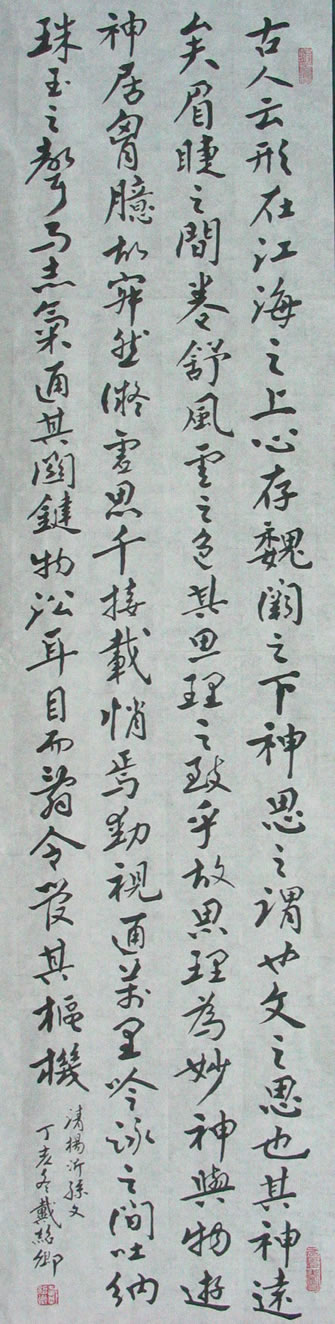 古人云形在江海之上心存魏闕之下神思之謂也文之思也其神遠
矣眉睫之間卷舒風雲之色其思理之致乎故思理為妙神與物遊
神居胷臆故寂然凝慮思千接載悄焉動視通萬里吟詠之間吐納
珠玉之聲志氣通其關鍵物沿耳目而辭令管其樞機
清楊沂孫文
丁亥冬戴卿